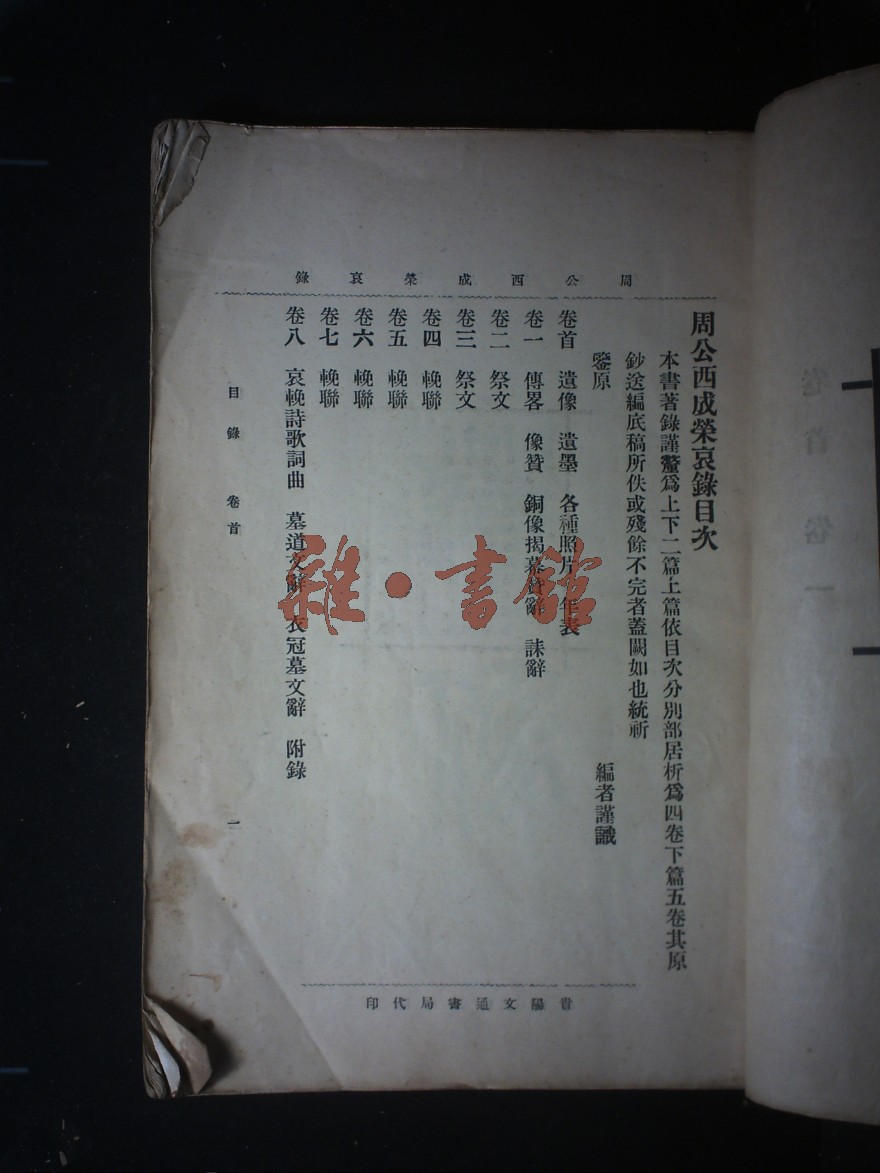 周公西成榮哀錄
周公西成榮哀錄目次
本書著錄謹釐爲上下二篇上篇依目次分別部居析爲四卷下篇五卷其原
鈔送編底稿所佚或殘餘不完者蓋闕如也統祈
鑒原
編者謹識
卷首 遺像 遺墨 各種照片 年表
卷一 傳畧 像贊 銅像揭幕贊辭 誄辭
卷二 祭文
卷三 祭文
卷四 輓聯
卷五 輓聯
卷六 輓聯
卷七 輓聯
卷八 哀輓詩歌詞曲 墓道文辭 衣冠墓文辭 附錄
目錄 卷首
一
貴陽文通書局代印
雜·書館
卷首 卷一